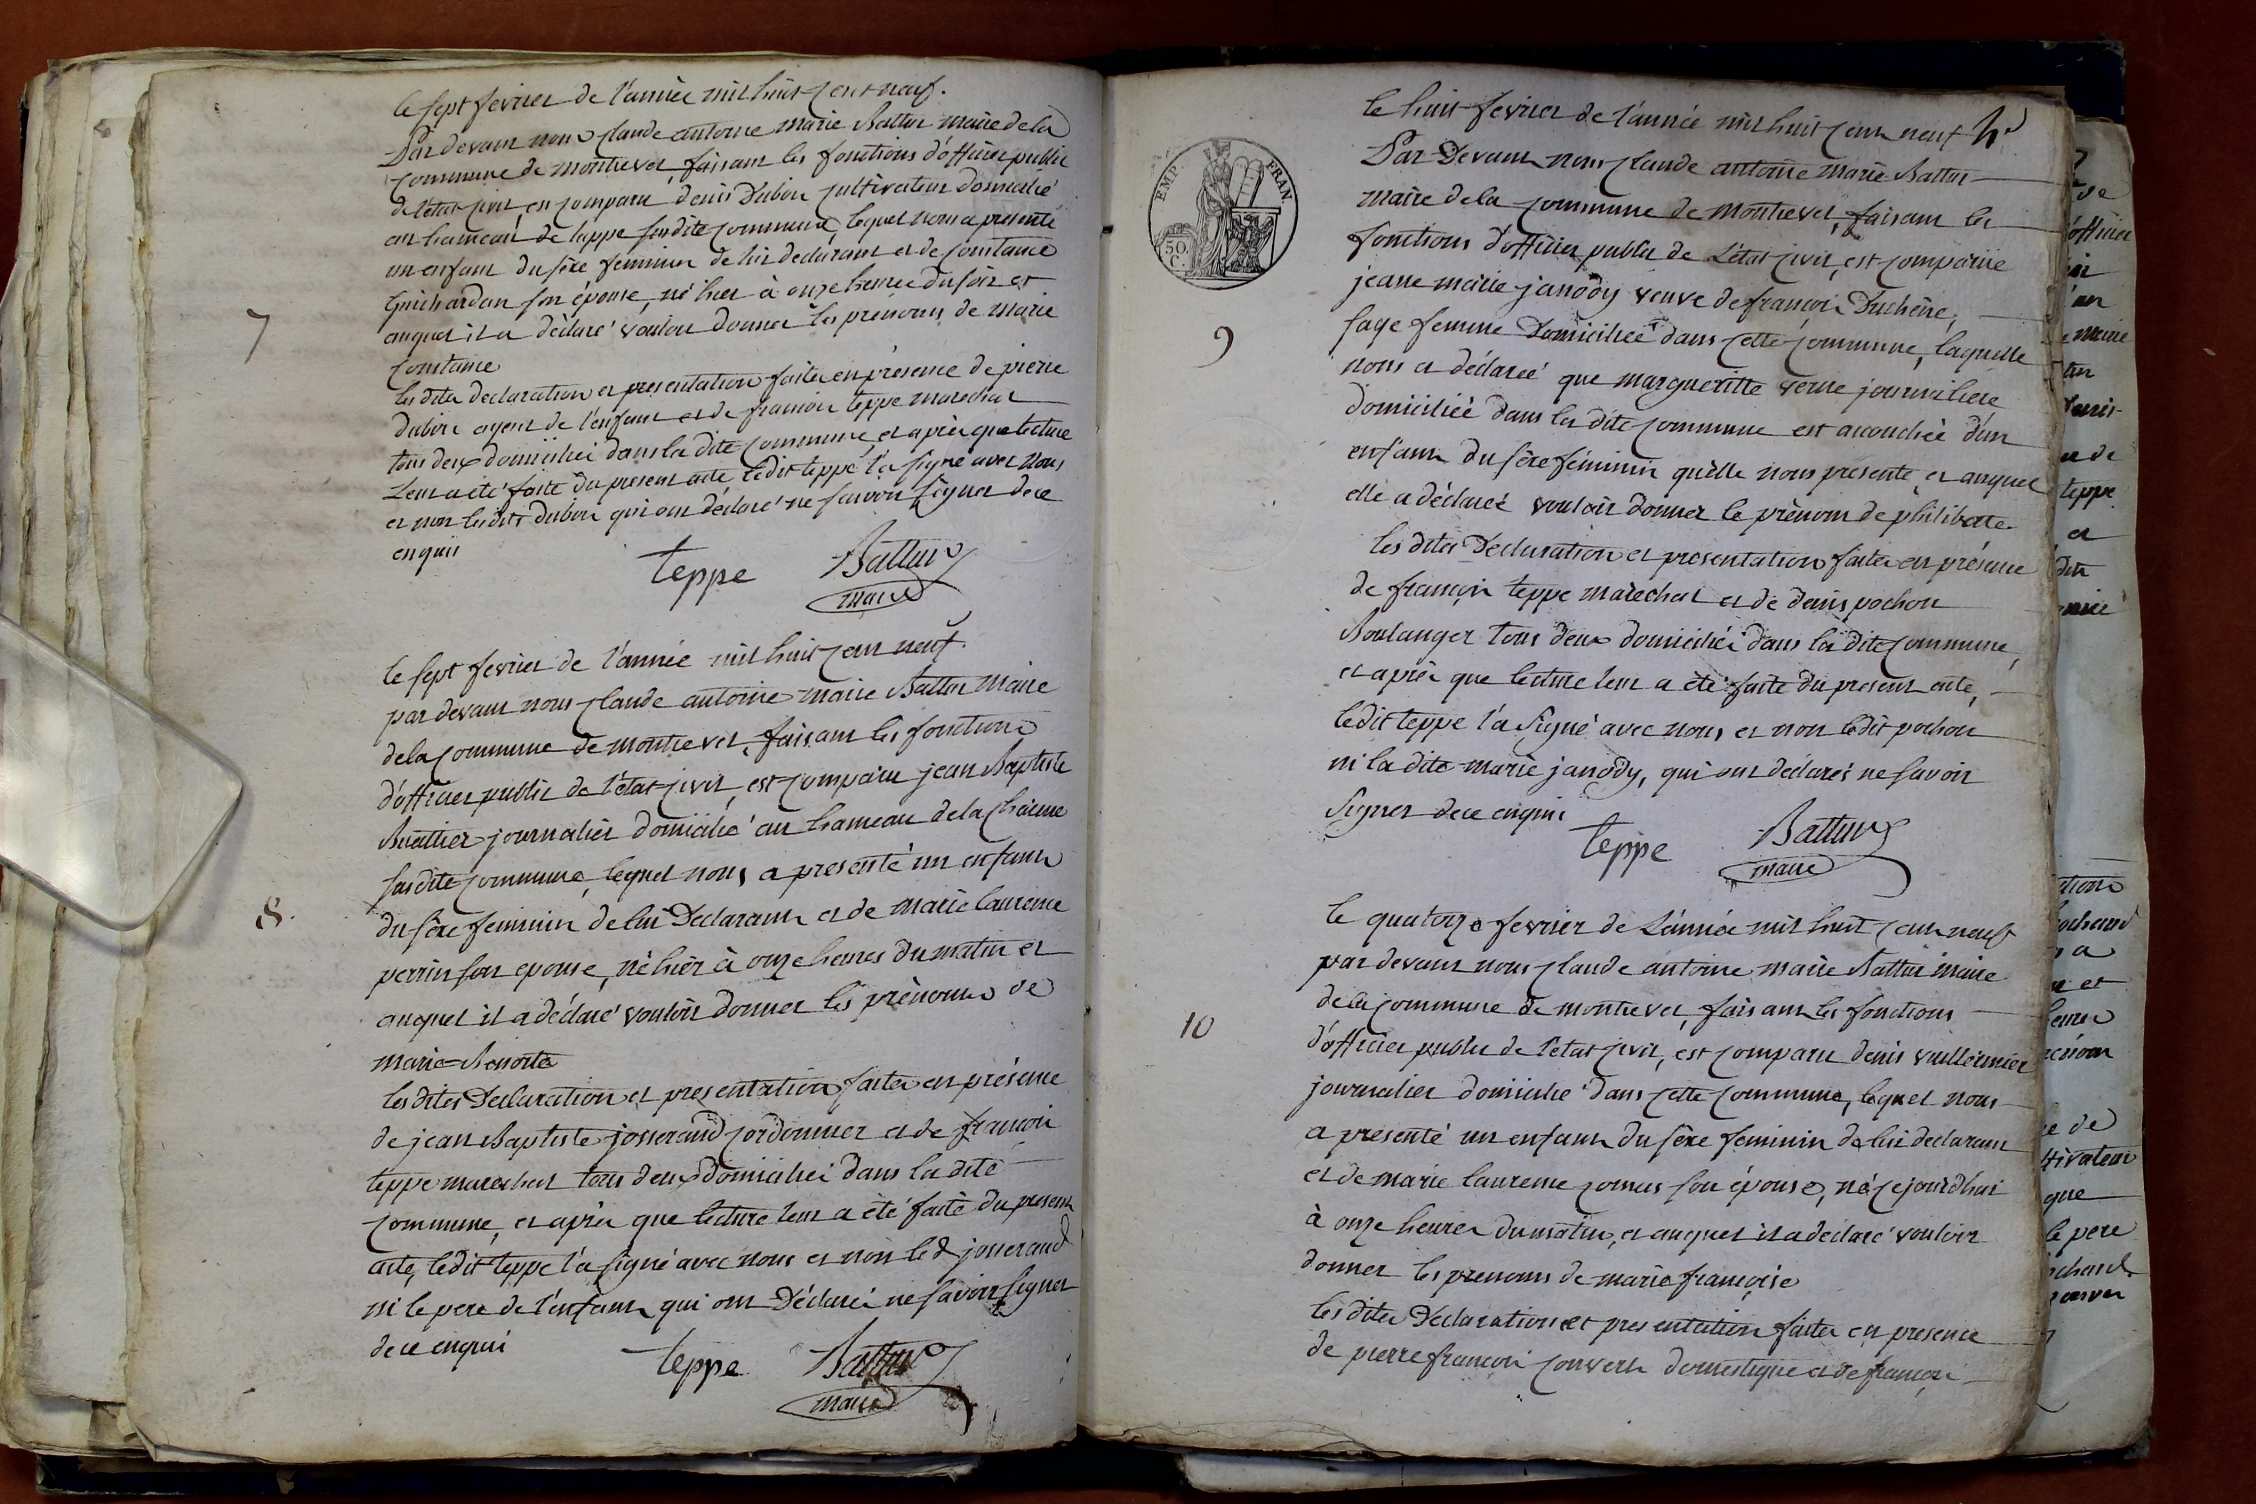 le sept fevrier de l'année mil huit cent neuf.
Par devant nous claude antoine marie Battur maire de la
commune de montrevel, faisant les fonctions d'officier public
de l'état civil, est comparu denis Dubois cultivateur domicilié
au hameau de lappe susdite commune, lequel nous a presenté
un enfant du sêxe feminin de lui declarant et de constance
Guichardan son épouse, né hier à onze heures du soir et
auquel il a déclaré vouloir donner les prénoms de marie
constance
7
les dites declaration et presentation faites en présence de pierre
dubois ayeul de l'enfant et de francois teppe marechal
tous deux domiciliés dans la dite commune, et après que lecture
leur a été faite du present acte ledit teppe l'a signé avec nous
et non lesdits dubois qui ont déclaré ne savoir signer de ce
enquis
teppe Battur
maire
le sept fevrier de l'année mil huit cent neuf.
par devant nous claude antoine marie Battur maire
de la commune de montrevel, faisant les fonctions
d'officier public de l'état civil, est comparu jean Baptiste
Buattier journalier domicilié au hameau de la charme
susdite commune, lequel nous a presenté un enfant
du sêxe feminin de lui Declarant et de marie laurence
8.
perrin son epouse, né hier à onze heures du matin et
auquel il a déclaré vouloir donner les prénoms de
marie=Benoite
les dites Declaration et presentation faites en présence
de jean Baptiste josserand cordonnier et de francois
teppe marechal tous deux domiciliés dans la dite
commune, et après que lecture leur a été faite du present
acte, ledit teppe l'a signé avec nous et non led josserand
ni le pere de l'enfant qui ont Déclaré ne savoir signer
de ce enquis
teppe Battur
maire
le huit fevrier de l'année mil huit cent neuf
EMP. FRAN.
50 C.
Par Devant nous claude antoine marie Battur
maire de la commune de montrevel, faisant les
fonctions d'officier public de L'état civil, est comparue
jeane marie janody veuve de françois Duchêne,
sage femme Domiciliée dans cette commune, laquelle
9
nous a déclareé que margueritte verne journaliere
domiciliée dans la dite commune est accouchée d'un
enfant du sêxe féminin qu'elle nous presente et auquel
elle a déclareé vouloir donner le prénom de philiberte
les dites Declaration et presentation faites en présence
de françois teppe maréchal et de denis pochon
Boulanger tous deux domiciliés dans la dite commune,
et après que lecture leur a été faite du present acte,
ledit teppe l'a signé avec nous et non ledit pochon
ni la dite marie janody, qui ont déclarés ne savoir
signer de ce enquis
teppe Battur
maire
le quatorze fevrier de L'année mil huit cent neuf
par devant nous claude antoine marie Battur maire
de la commune de montrevel, faisant les fonctions
10
d'officier public de l'état civil, est comparu denis vuillermier
journalier domicilié dans cette commune, lequel nous
a presenté un enfant du sêxe feminin de lui declarant
et de marie laurence comas son épouse, né cejourd'hui
à onze heures du matin, et auquel il a déclaré vouloir
donner les prenoms de marie françoise
les dites Declaration et presentation faites en presence
de pierre françois convert domestique et de françois